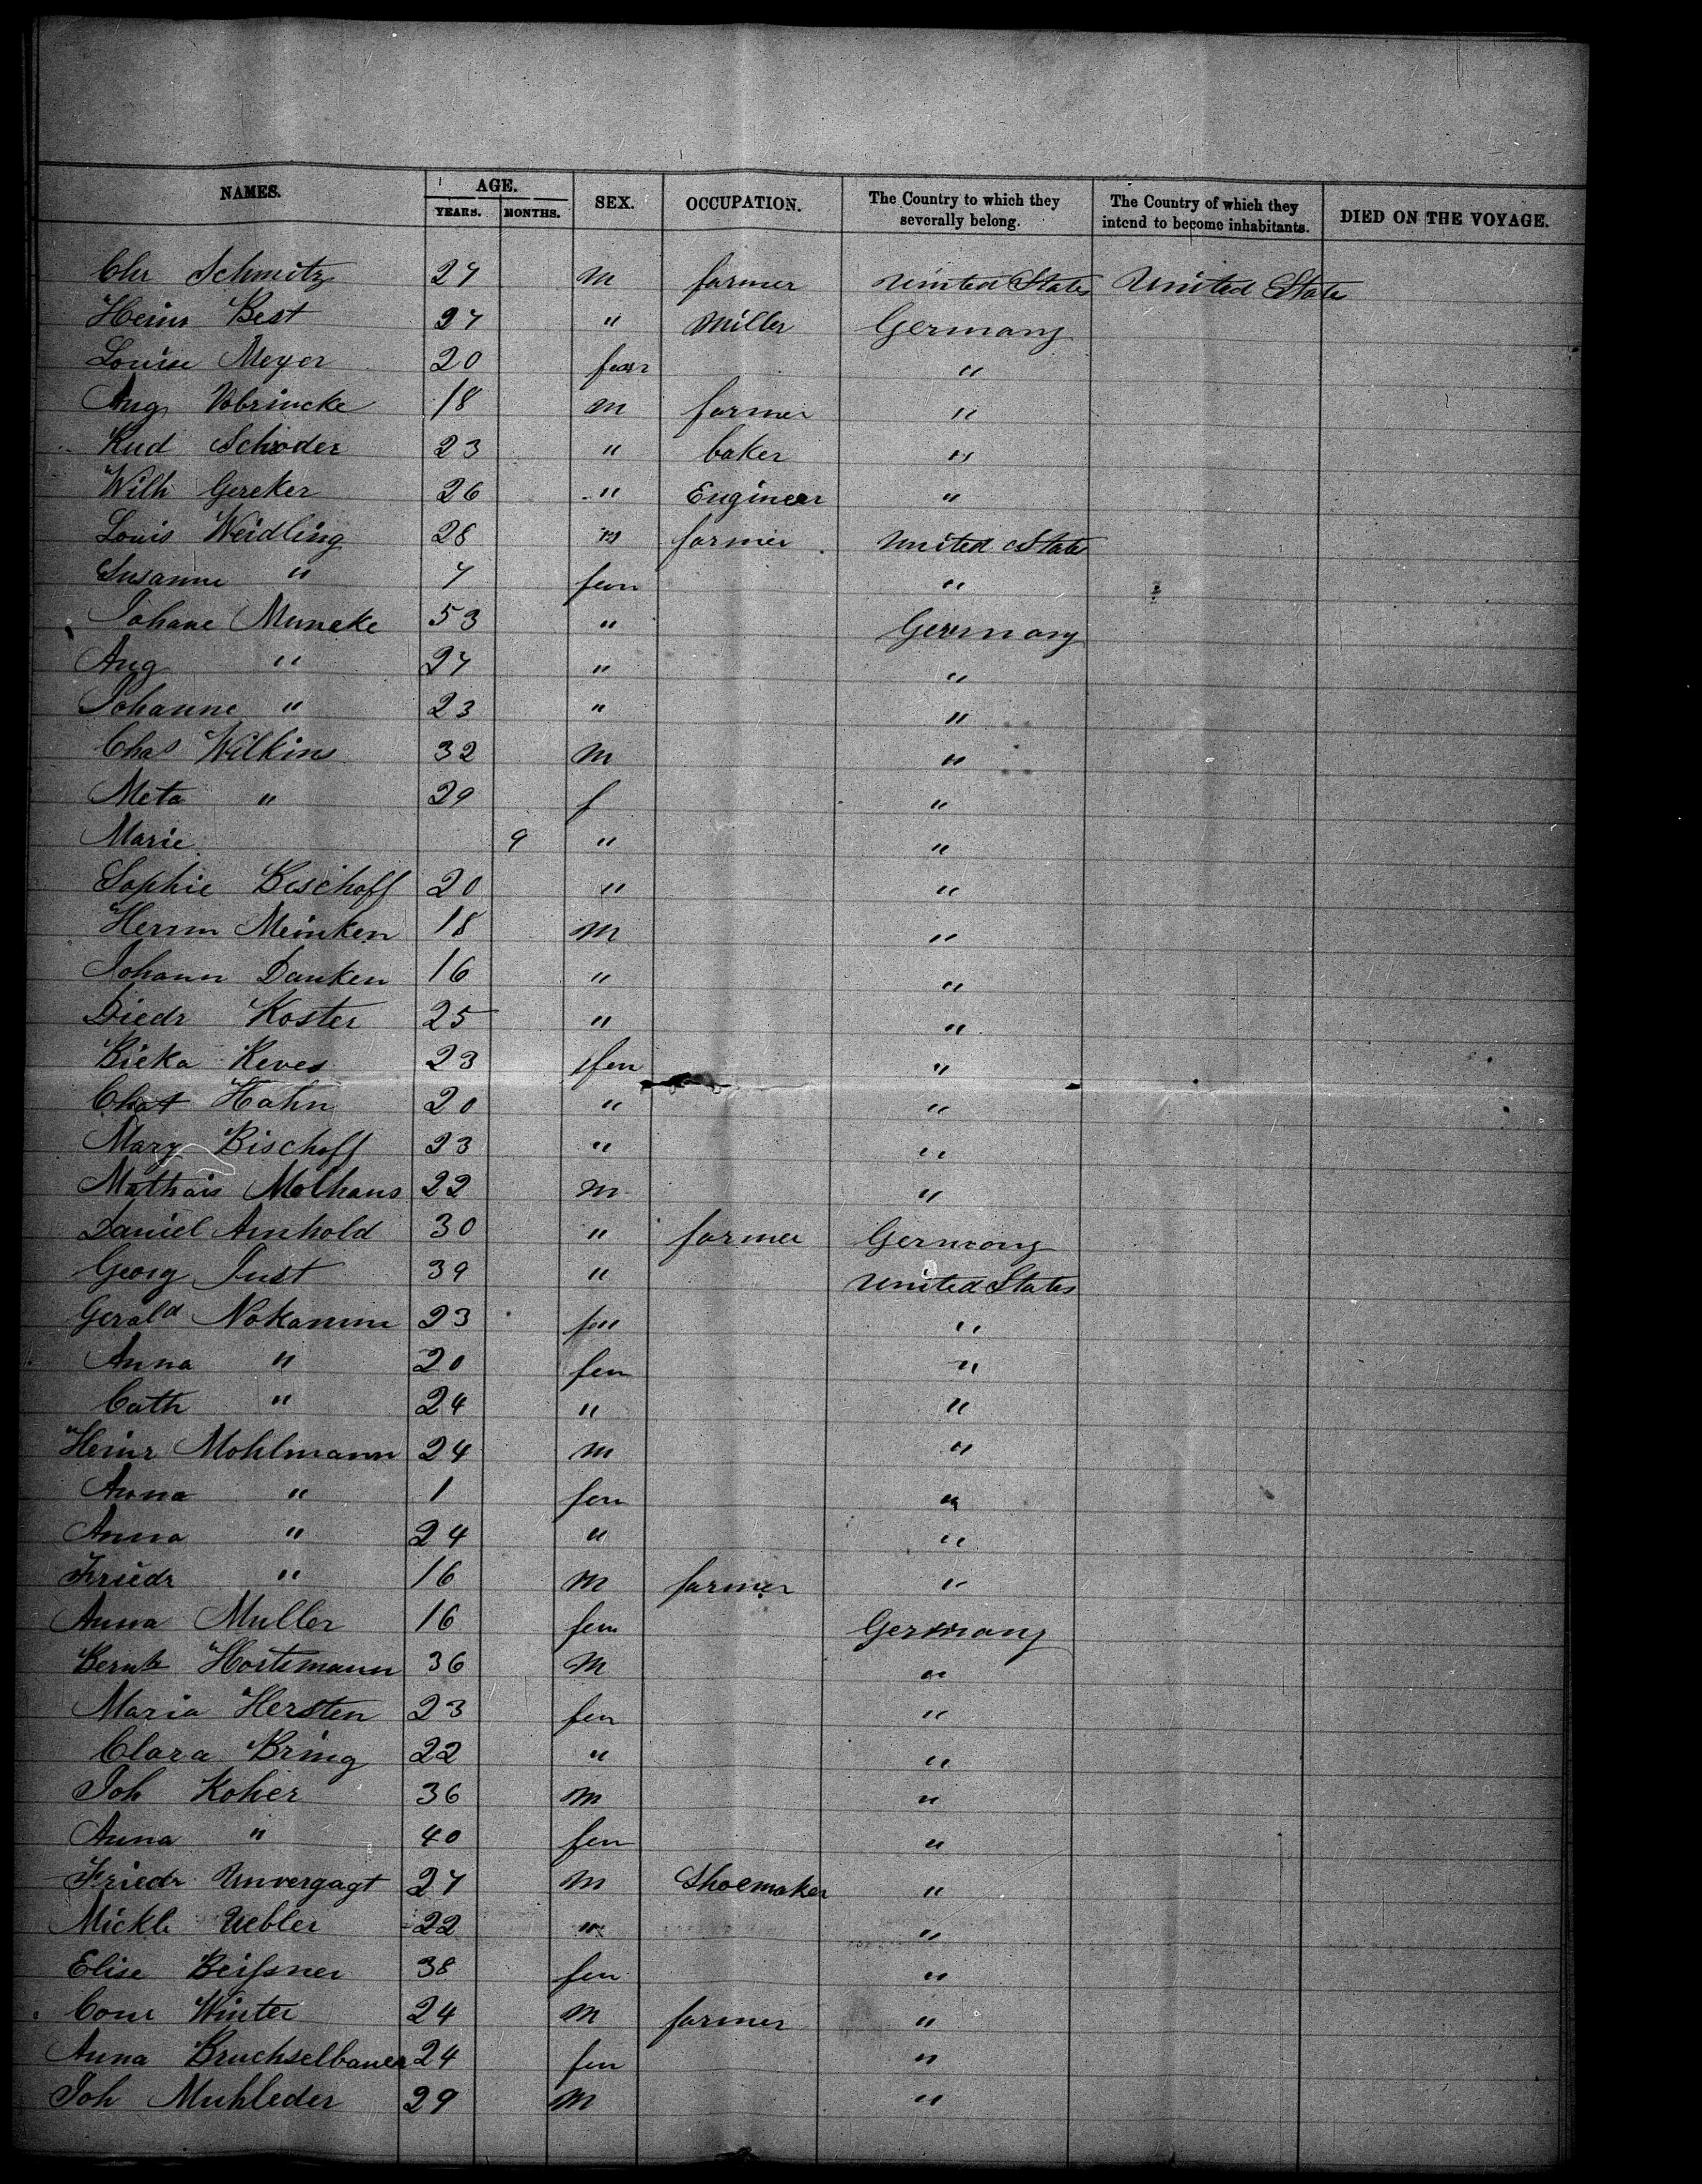 NAMES. AGE. SEX. OCCUPATION. The Country to which they severally belong. The Country of which they intend to become inhabitants. DIED ON THE VOYAGE.
YEARS. MONTHS.
Chr Schmitz 27 m farmer United States United State
Heinr Best 27 " Miller Germany
Louise Meyer 20 fem "
Aug Vobrincke 18 m farmer "
Rud Schroder 23 " baker "
Wilh Gereker 26 " Engineer "
Louis Weidling 28 m farmer United State
Susanne " 7 fem "
Johane Muncke 53 " Germany
Aug " 27 " "
Johanne " 23 " "
Chas Wilkins 32 m "
Meta " 29 f "
Marie 9 " "
Sophie Bischoff 20 " "
Herm Meinken 18 m "
Johann Danken 16 " "
Diedr Koster 25 " "
Bieka Reves 23 fem "
Chat Hahn 20 " "
Mary Bischoff 23 " "
Mathais Molhaus 22 m "
Daniel Arnhold 30 " farmer Germany
Georg Just 39 " United States
Gerald Nokamme 23 fem "
Anna " 20 fem "
Cath " 24 " "
Heinr Mohlmann 24 m "
Anna " 1 fem "
Anna " 24 " "
Friedr " 16 m farmer "
Anna Muller 16 fem Germany
Hortsmann 36 m "
Maria Hersten 23 fem "
Clara Bring 22 " "
Joh Koher 36 m "
Anna " 40 fem "
Friedr Unvergagt 27 m Shoemaker "
Mickl Uebler 22 " "
Elise Beißner 38 fem "
Conr Winter 24 m farmer "
Anna Bruchselbauer 24 fem "
Joh Muhleder 29 m "